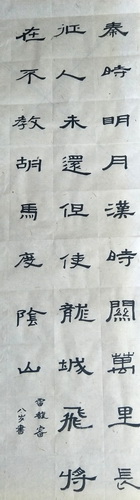 秦時明月漢時關萬里長
征人未還但使龍城飛將
在不教胡馬度陰山
雷
八岁書